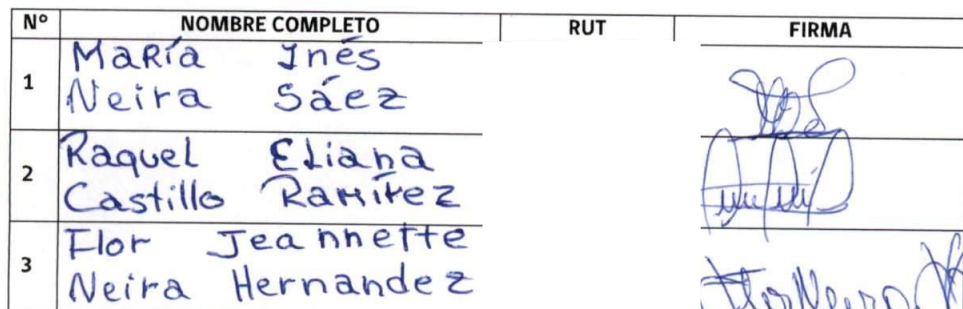 Nº NOMBRE COMPLETO RUT FIRMA
1
María Inés
Neira Sáez
2
Raquel Eliana
Castillo Ramírez
3
Flor Jeannette
Neira Hernandez
Flor Neira